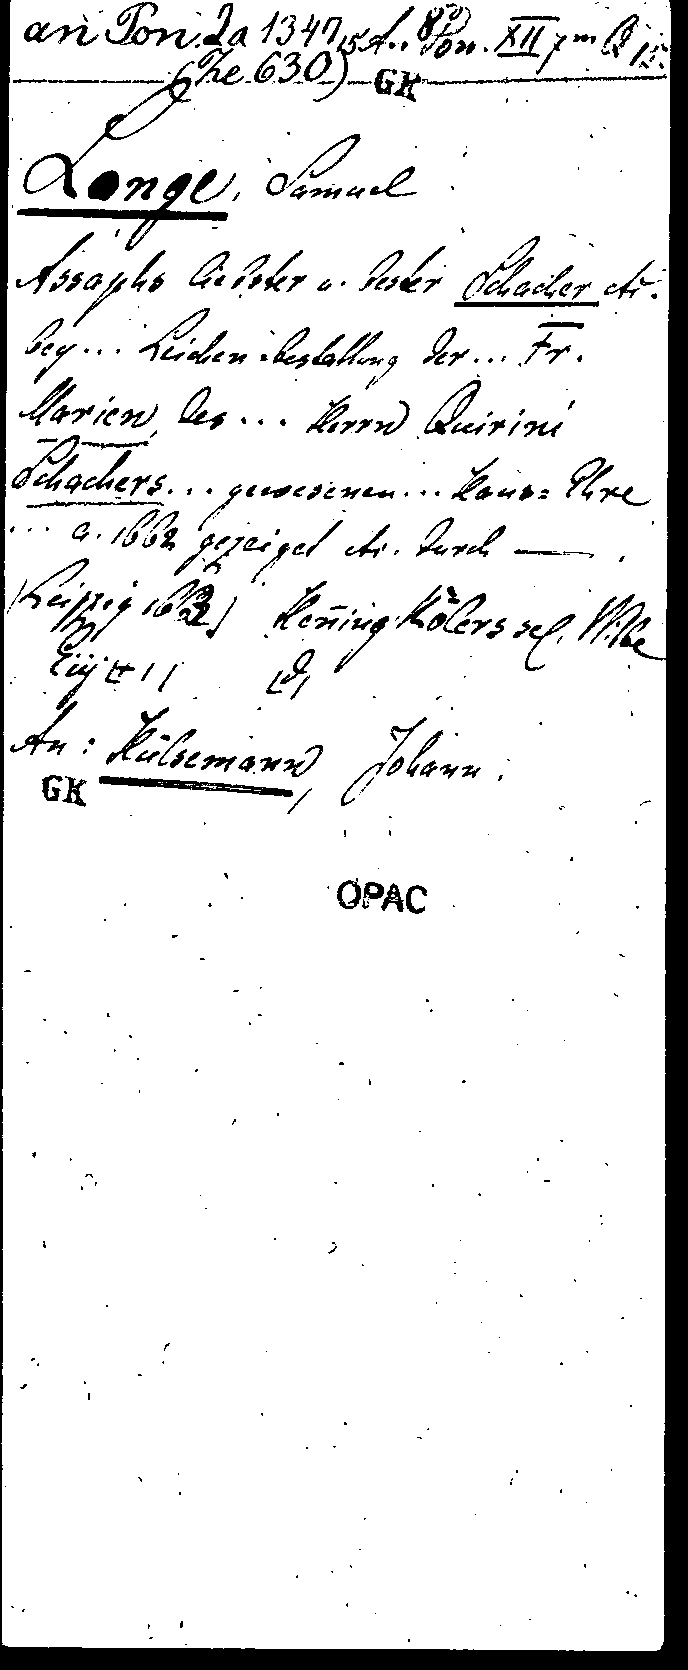 an Pon. Za 1347, 15 An. 8° Pon. XII 7m Q 15.
(Ze 630) GK
Lange, Samuel
Assaphs liebster u. bester Schacher etc.
bey... Leichen-bestattung der... Fr.
Marien, des... Herrn Quirini
Schachers... gewesenen... Haus-Ehre
... a. 1662 gezeiget etc. durch — .
[Leipzig 1662] Henning Kölers sel. Witbe
An: Hülsemann, Johann.
GK
OPAC